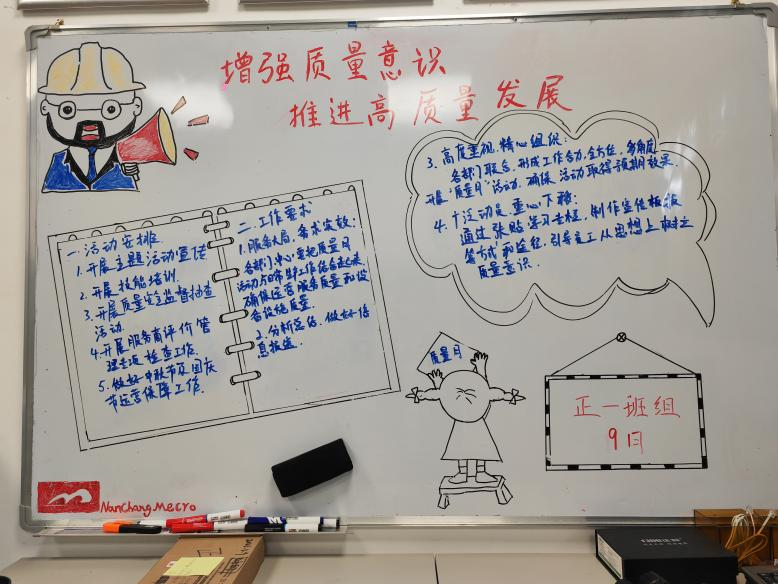 增强质量意识
推进高质量发展
一.活动安排
1.开展主题活动宣传
2.开展技能培训
3.开展质量安全监督抽查
活动.
4.开展服务商评价管
理专项检查工作.
5.做好中秋节及国庆
节运营保障工作.
二.工作要求
1.服务大局,务求实效:
各部门、中心要把质量月
活动与日常生产工作结合起来
确保运营服务质量和设
备设施质量.
2.分析总结,做好信
息报送.
3.高度重视,精心组织:
各部门联合,形成工作合力,全方位,多角度
开展"质量月"活动,确保活动取得预期效果.
4.广泛动员,重心下移:
通过张贴学习专栏,制作宣传板报
等方式和途径,引导员工从思想上树立
质量意识.
质量月
正一班组
9月
NanChang Mecro